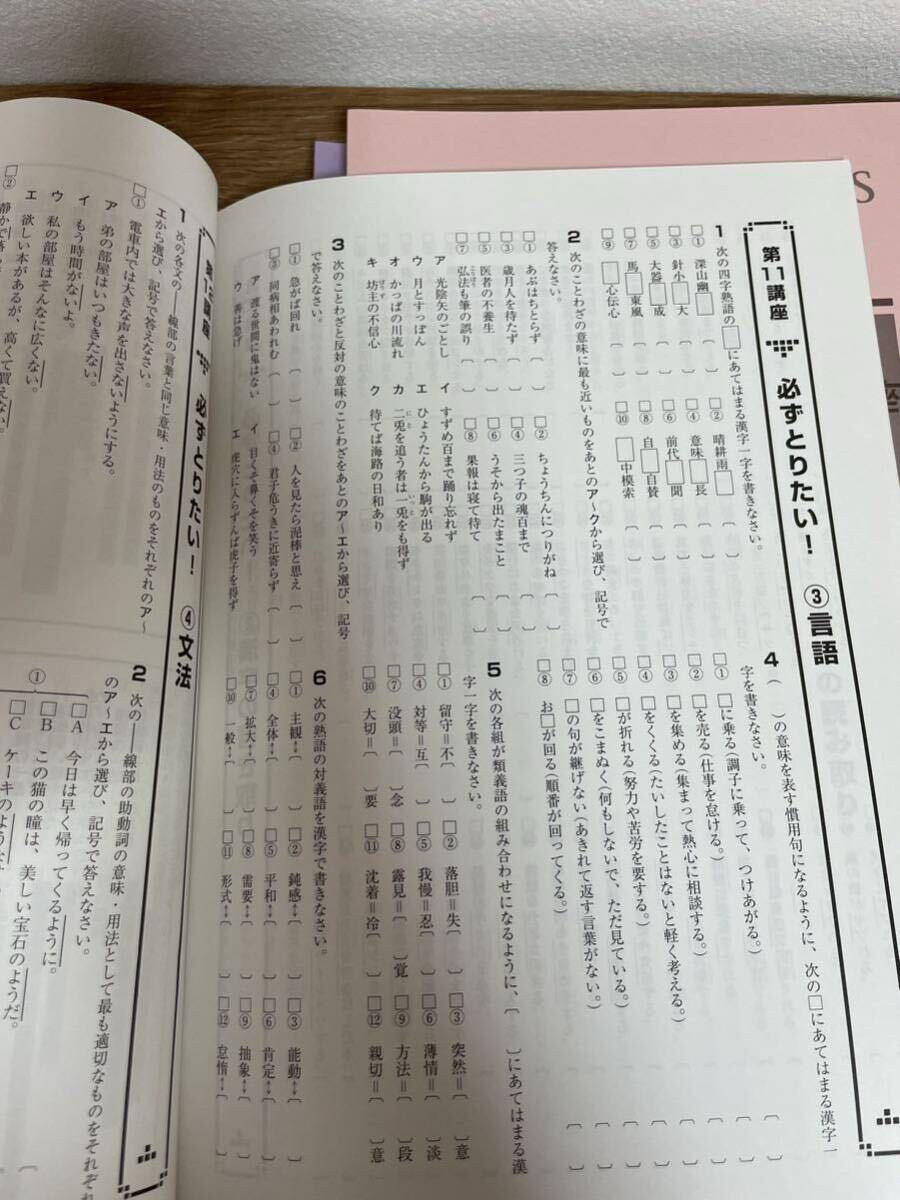 第11講座 必ずとりたい! ③言語
1 次の四字熟語の□にあてはまる漢字一字を書きなさい。
□① 深山幽□ 〔 〕
□② 晴耕雨□ 〔 〕
□③ 針小□大 〔 〕
□④ 意味□長 〔 〕
□⑤ 大器□成 〔 〕
□⑥ 前代□聞 〔 〕
□⑦ 馬□東風 〔 〕
□⑧ 自□自賛 〔 〕
□⑨ □心伝心 〔 〕
□⑩ □中模索 〔 〕
2 次のことわざの意味に最も近いものをあとのア~クから選び、記号で
答えなさい。
□① あぶはちとらず 〔 〕
□② ちょうちんにつりがね 〔 〕
□③ 歳月人を待たず 〔 〕
□④ 三つ子の魂百まで 〔 〕
□⑤ 医者の不養生 〔 〕
□⑥ うそから出たまこと 〔 〕
□⑦ 弘法も筆の誤り 〔 〕
□⑧ 果報は寝て待て 〔 〕
ア 光陰矢のごとし
イ すずめ百まで踊り忘れず
ウ 月とすっぽん
エ ひょうたんから駒が出る
オ かっぱの川流れ
カ 二兎を追う者は一兎をも得ず
キ 坊主の不信心
ク 待てば海路の日和あり
3 次のことわざと反対の意味のことわざをあとのア~エから選び、記号
で答えなさい。
□① 急がば回れ 〔 〕
□② 人を見たら泥棒と思え 〔 〕
□③ 同病相あわれむ 〔 〕
□④ 君子危うきに近寄らず 〔 〕
ア 渡る世間に鬼はない
イ 目くそ鼻くそを笑う
ウ 善は急げ
エ 虎穴に入らずんば虎子を得ず
4 ( )の意味を表す慣用句になるように、次の□にあてはまる漢字一
字を書きなさい。
□① □に乗る(調子に乗って、つけあがる。) 〔 〕
□② □を売る(仕事を怠ける。) 〔 〕
□③ □を集める(集まって熱心に相談する。) 〔 〕
□④ □をくくる(たいしたことはないと軽く考える。) 〔 〕
□⑤ □が折れる(努力や苦労を要する。) 〔 〕
□⑥ □をこまぬく(何もしないで、ただ見ている。) 〔 〕
□⑦ □の句が継げない(あきれて返す言葉がない。) 〔 〕
□⑧ お□が回る(順番が回ってくる。) 〔 〕
5 次の各組が類義語の組み合わせになるように、〔 〕にあてはまる漢
字一字を書きなさい。
□① 留守=不〔 〕
□② 落胆=失〔 〕
□③ 突然=〔 〕意
□④ 対等=互〔 〕
□⑤ 我慢=忍〔 〕
□⑥ 薄情=〔 〕淡
□⑦ 没頭=〔 〕念
□⑧ 露見=〔 〕覚
□⑨ 方法=〔 〕段
□⑩ 大切=〔 〕要
□⑪ 沈着=冷〔 〕
□⑫ 親切=〔 〕意
6 次の熟語の対義語を漢字で書きなさい。
□① 主観↔〔 〕
□② 鈍感↔〔 〕
□③ 能動↔〔 〕
□④ 全体↔〔 〕
□⑤ 平和↔〔 〕
□⑥ 肯定↔〔 〕
□⑦ 拡大↔〔 〕
□⑧ 需要↔〔 〕
□⑨ 抽象↔〔 〕
□⑩ 一般↔〔 〕
□⑪ 形式↔〔 〕
□⑫ 怠惰↔〔 〕
第12講座 必ずとりたい! ④文法
1 次の各文の 線部の言葉と同じ意味・用法のものをそれぞれのア~
エから選び、記号で答えなさい。
□① 電車内では大きな声を出さないようにする。
ア 弟の部屋はいつもきたない。
イ もう時間がないよ。
ウ 私の部屋はそんなに広くない。
エ 欲しい本があるが、高くて買えない。
□②
2 次の―線部の助動詞の意味・用法として最も適切なものをそれぞれ
のア~エから選び、記号で答えなさい。
①
□A 今日は早く帰ってくるように。
□B この猫の瞳は、美しい宝石のようだ。
□C ケーキの
S